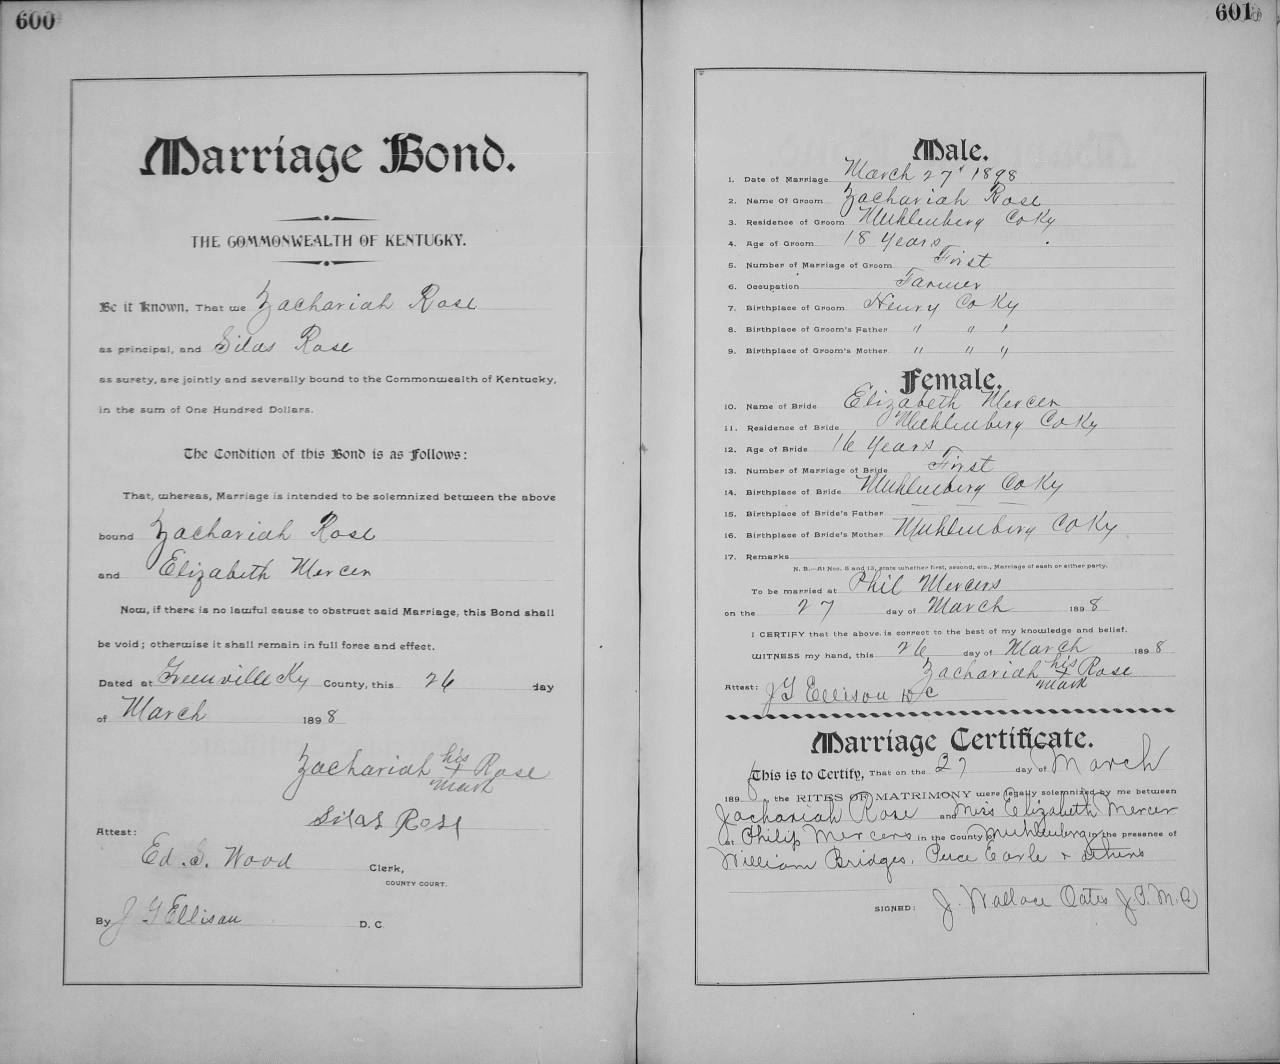 600
Marriage Bond.
THE COMMONWEALTH OF KENTUCKY.
Be it known, That we Zachariah Rose
as principal, and Silas Rose
as surety, are jointly and severally bound to the Commonwealth of Kentucky,
in the sum of One Hundred Dollars.
The Condition of this Bond is as Follows:
That, whereas, Marriage is intended to be solemnized between the above
bound Zachariah Rose
and Elizabeth Mercer
Now, if there is no lawful cause to obstruct said Marriage, this Bond shall
be void; otherwise it shall remain in full force and effect.
Dated at Greenville Ky County, this 26 day
of March 1898
Zachariah his x mark Rose
Silas Rose
Attest:
Ed. S. Wood Clerk,
COUNTY COURT.
By J G Ellison D. C.
601
Male.
1. Date of Marriage March 27" 1898
2. Name Of Groom Zachariah Rose
3. Residence of Groom Muhlenberg Co Ky
4. Age of Groom 18 Years
5. Number of Marriage of Groom First
6. Occupation Farmer
7. Birthplace of Groom Henry Co Ky
8. Birthplace of Groom's Father " " "
9. Birthplace of Groom's Mother " " "
Female.
10. Name of Bride Elizabeth Mercer
11. Residence of Bride Muhlenberg Co Ky
12. Age of Bride 16 Years
13. Number of Marriage of Bride First
14. Birthplace of Bride Muhlenberg Co Ky
15. Birthplace of Bride's Father
16. Birthplace of Bride's Mother Muhlenberg Co Ky
17. Remarks
N. B.—At Nos. 5 and 13, state whether first, second, etc., Marriage of each or either party.
To be married at Phil Mercers
on the 27 day of March 1898
I CERTIFY that the above is correct to the best of my knowledge and belief.
WITNESS my hand, this 26 day of March 1898
Zachariah his x mark Rose
Attest: J G Ellison D C
Marriage Certificate.
This is to Certify, That on the 27 day of March
1898, the RITES OF MATRIMONY were legally solemnized by me between
Zachariah Rose and Miss Elizabeth Mercer
at Philip Mercers in the County of Muhlenberg in the presence of
William Bridges, Earle & others
SIGNED: J. Wallace Oates J. P. M. C